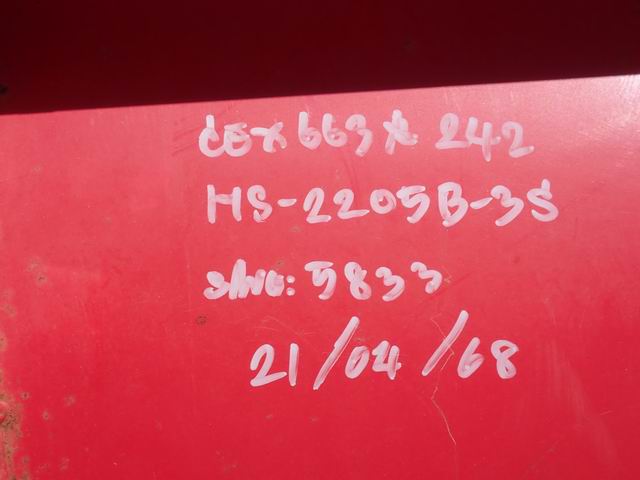 CEX663* 242
HS-2205B-3S
S/NO: 5833
21/04/68